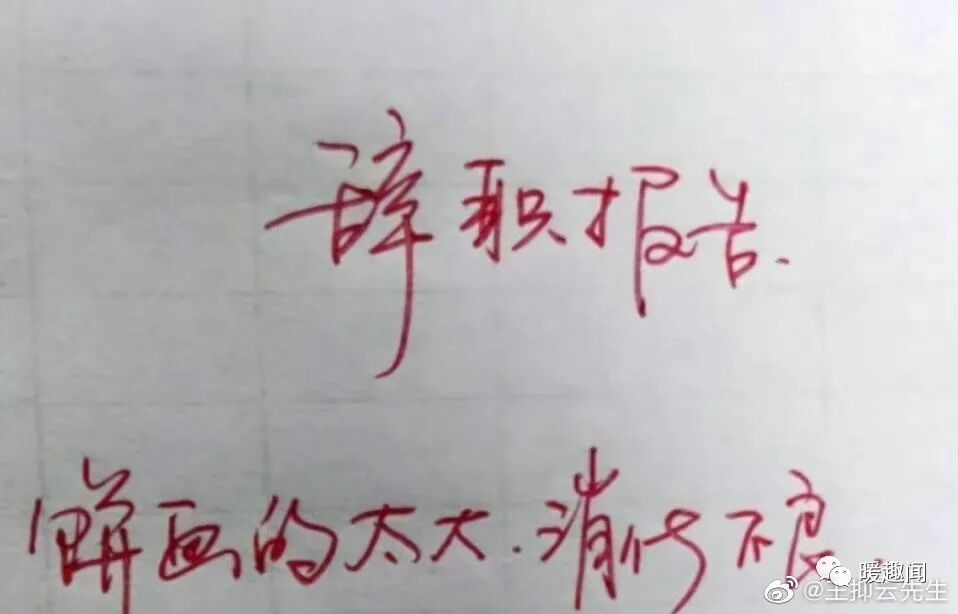 辞职报告.
饼画的太大.消化不良.
暖趣闻
@王抑云先生